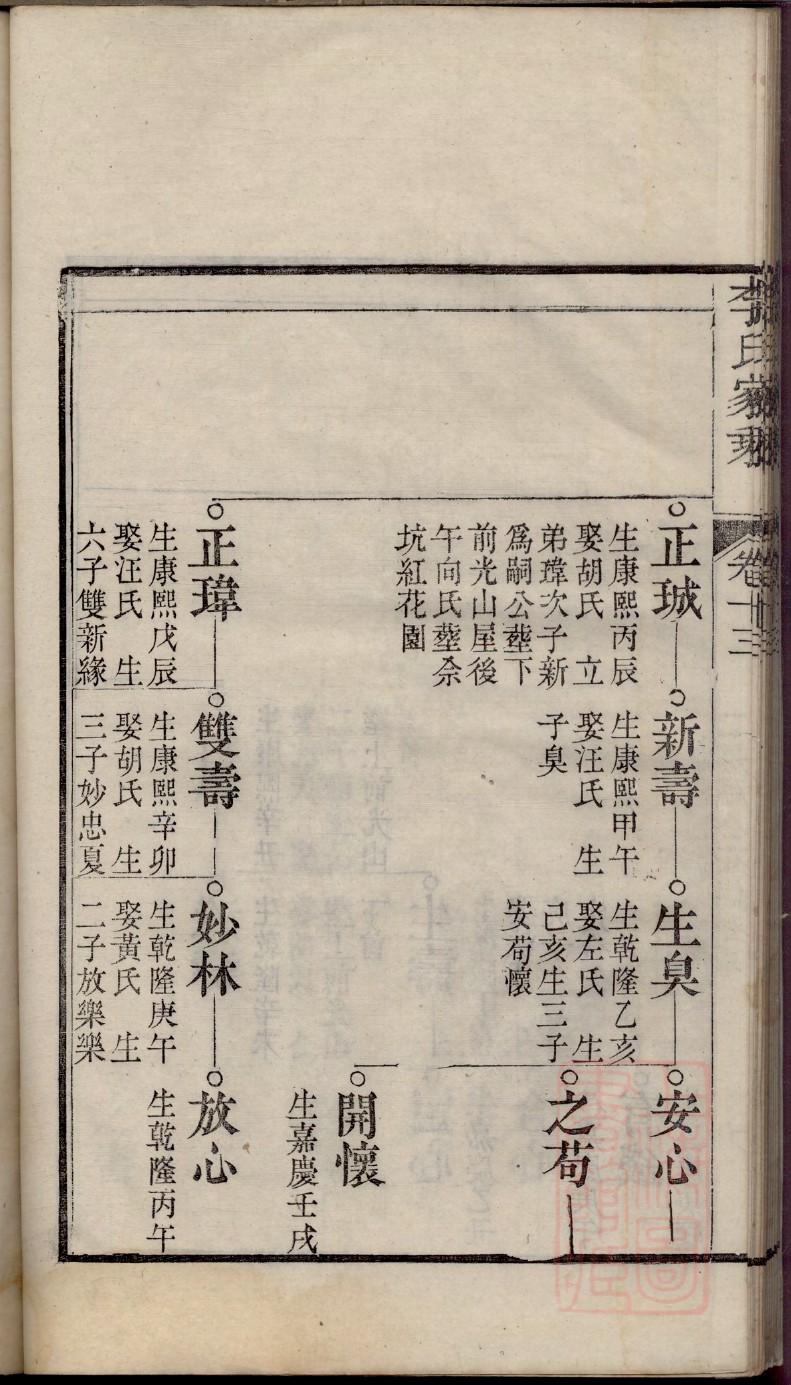 李氏家乘
卷十三
正珹
生康熙丙辰
娶胡氏 立
弟瑋次子新
為嗣公塟下
前光山屋後
午向氏塟佘
坑紅花園
正瑋
生康熙戊辰
娶汪氏 生
六子雙新緣
新壽
生康熙甲午
娶汪氏 生
子臭
雙壽
生康熙辛卯
娶胡氏 生
三子妙忠夏
生臭
生乾隆乙亥
娶左氏 生
己亥生三子
安苟懷
妙林
生乾隆庚午
娶黃氏 生
二子放樂樂
安心
之苟
開懷
生嘉慶壬戌
放心
生乾隆丙午